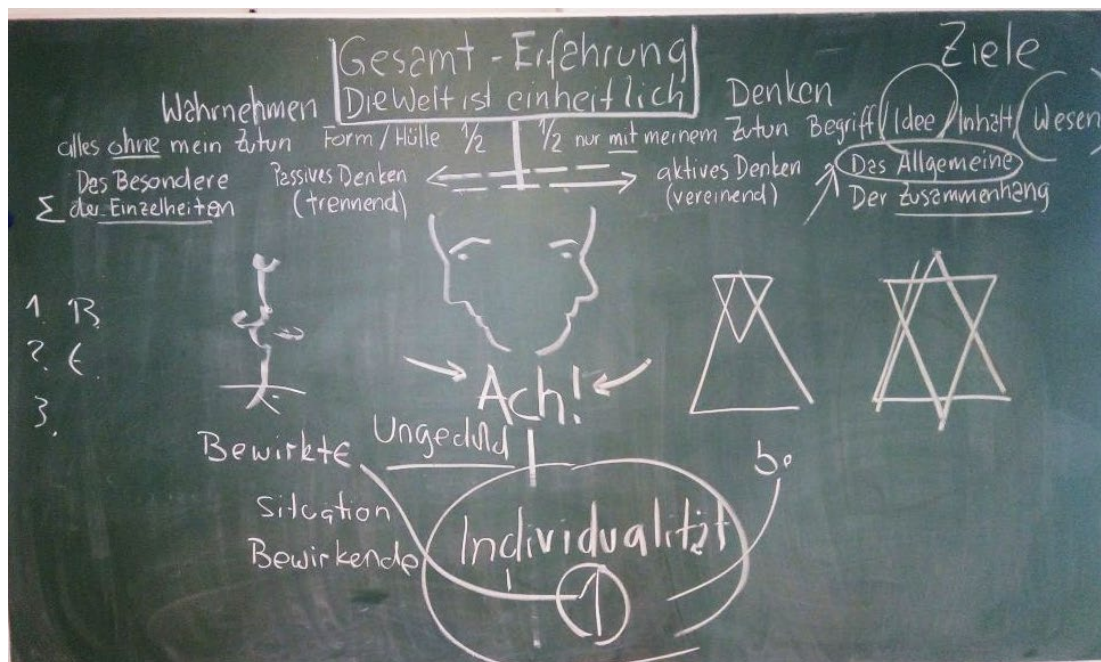 Gesamt - Erfahrung
Die Welt ist einheitlich
Ziele
Wahrnehmen
Denken
alles ohne mein Zutun Form / Hülle 1/2
1/2 nur mit meinem Zutun Begriff / Idee / Inhalt (Wesen)
Das Besondere
Σ der Einzelheiten
Passives Denken
(trennend)
aktives Denken
(vereinend)
Das Allgemeine
Der Zusammenhang
1. B.
2. E.
3.
Ach!
Ungeduld
Bewirkte
Situation
Bewirkende
Individualität